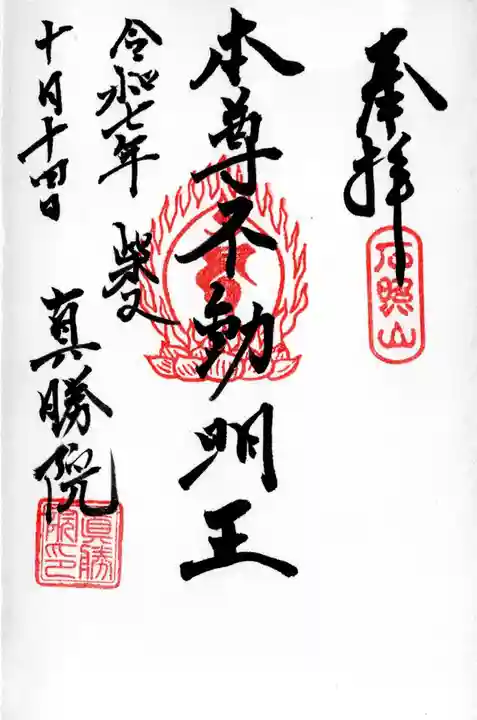 奉拝
石照山
本尊不動明王
令和七年
十月十四日
柴又
真勝院
真勝院印